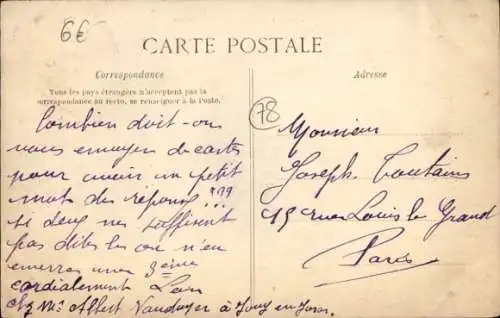 6€
CARTE POSTALE
Correspondance
Adresse
Tous les pays étrangers n'acceptent pas la
correspondance au recto, se renseigner à la Poste.
78
Combien doit-on
vous envoyer de cartes
pour avoir un petit
mot de réponse !!??
si deux ne suffisent
pas dites le on n'en
enverra une 3ème
cordialement Léon
chez Mr Albert Vauduyer à Jouy en Josas
Monsieur
Joseph Toutains
15 rue Louis le Grand
Paris